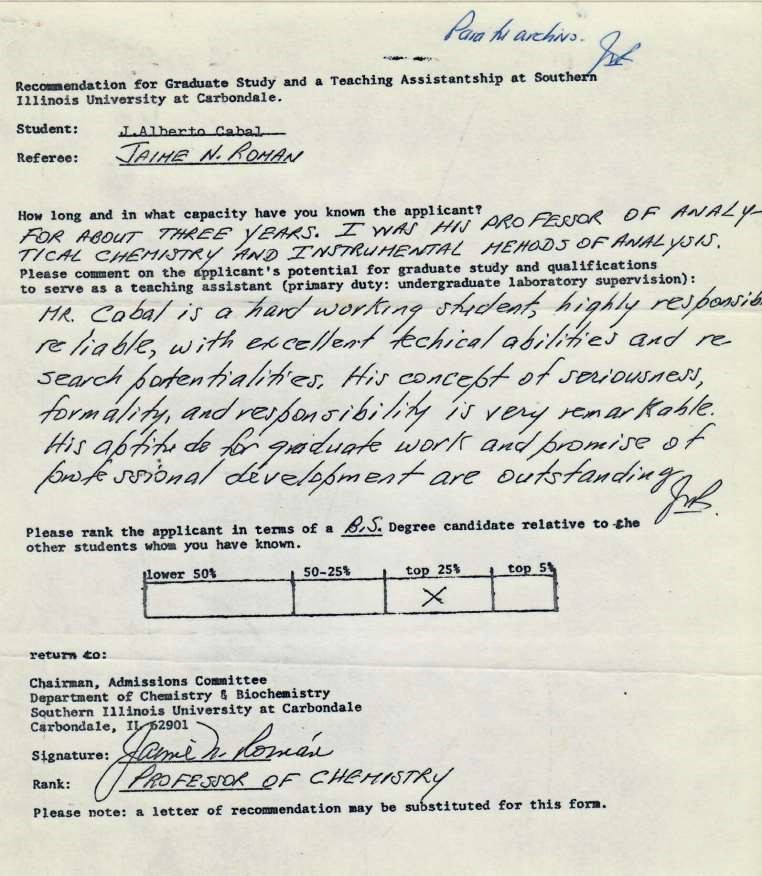 Para tu archivo. JnR
Recommendation for Graduate Study and a Teaching Assistantship at Southern
Illinois University at Carbondale.
Student: J.Alberto Cabal
Referee: JAIME N. ROMAN
How long and in what capacity have you known the applicant?
FOR ABOUT THREE YEARS. I WAS HIS PROFESSOR OF ANALY-
TICAL CHEMISTRY AND INSTRUMENTAL MEHODS OF ANALYSIS.
Please comment on the applicant's potential for graduate study and qualifications
to serve as a teaching assistant (primary duty: undergraduate laboratory supervision):
MR. Cabal is a hard working student, highly responsib
reliable, with excellent techical abilities and re
search potentialities. His concept of seriousness,
formality, and responsibility is very remarkable.
His aptitude for graduate work and promise of
professional development are outstanding
JnR.
Please rank the applicant in terms of a B.S. Degree candidate relative to the
other students whom you have known.
lower 50% 50-25% top 25% top 5%
X
return to:
Chairman, Admissions Committee
Department of Chemistry & Biochemistry
Southern Illinois University at Carbondale
Carbondale, IL 62901
Signature: Jaime N. Román
Rank: PROFESSOR OF CHEMISTRY
Please note: a letter of recommendation may be substituted for this form.